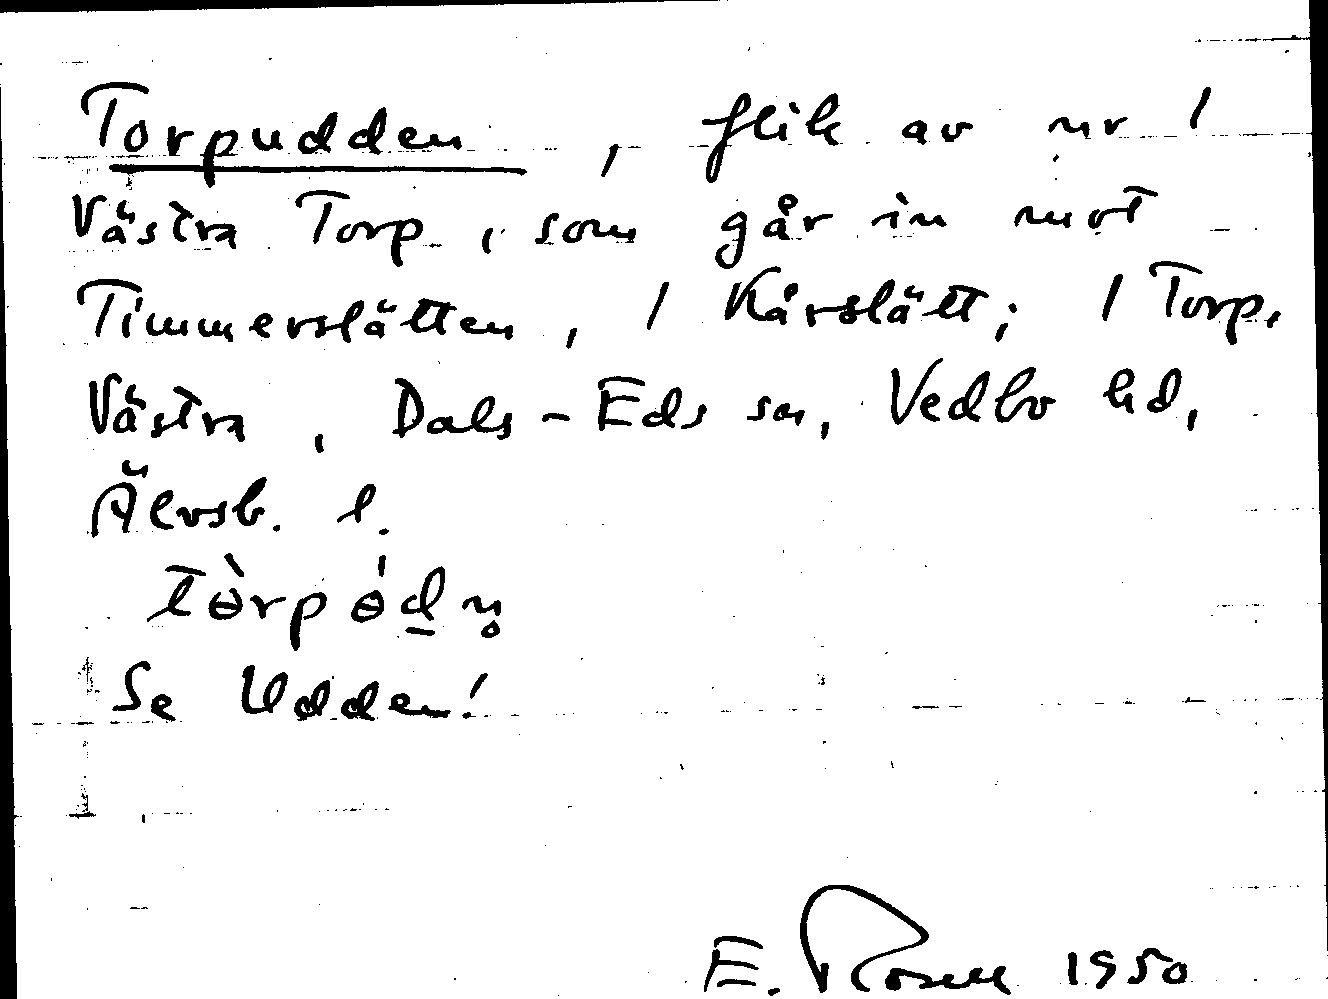 Torpudden, flik av nr 1
Västra Torp, som går in mot
Timmerslätten, 1 Kårslätt; 1 Torp,
Västra, Dals-Eds sn, Vedbo hd,
Älvsb. l.
tɵ̀rpɵ́d̲n̥
Se Udden!
E. Rosell 1950